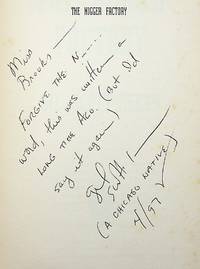 THE NIGGER FACTORY
Miss
Brooks —
FORGIVE THE N-----
word, this was written a
LONG TIME AGO. (But I'd
say it again)
Gil
Scott
(A CHICAGO NATIVE)
4/97